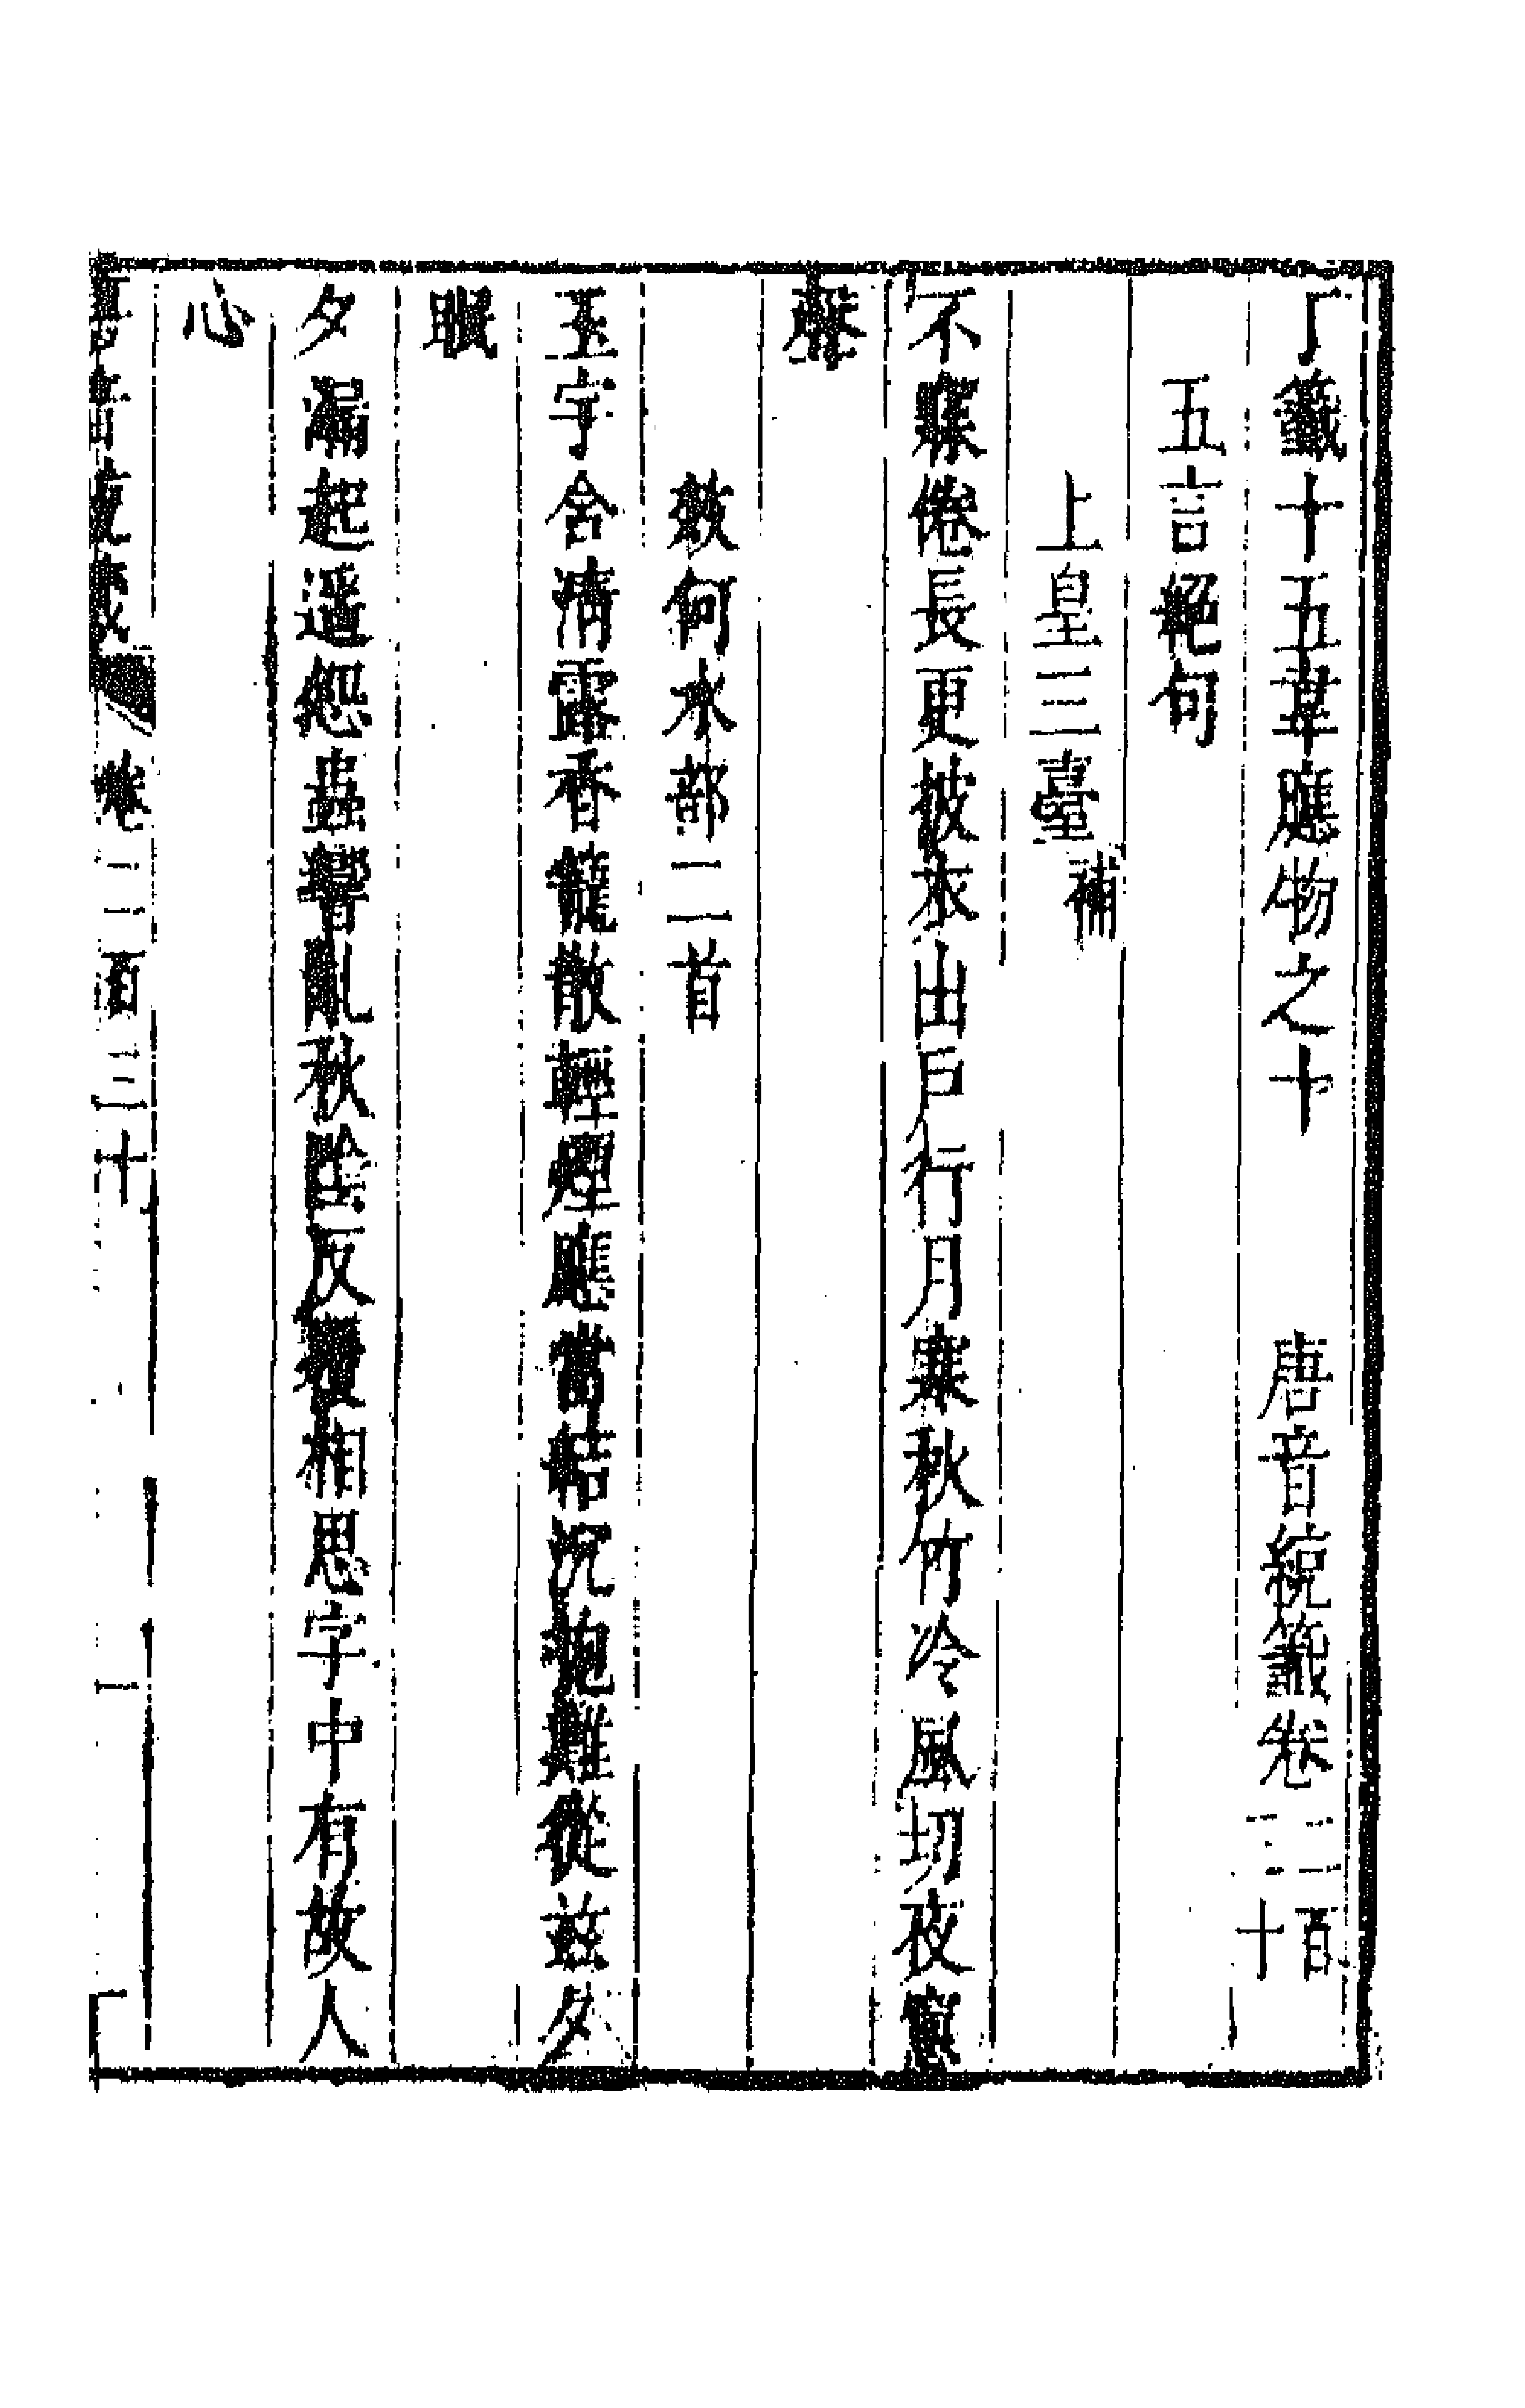 丁籤十五韋應物之十 唐音統籤卷二百三十
五言絕句
上皇三臺補
不寐倦長更披衣出戶行月寒秋竹冷風切夜窻
聲
效何水部二首
玉宇含清露香籠散輕煙應當結沉抱難從茲夕
眠
夕漏起遥怨蟲響亂秋陰反覆相思字中有故人
心
卷二百三十 一